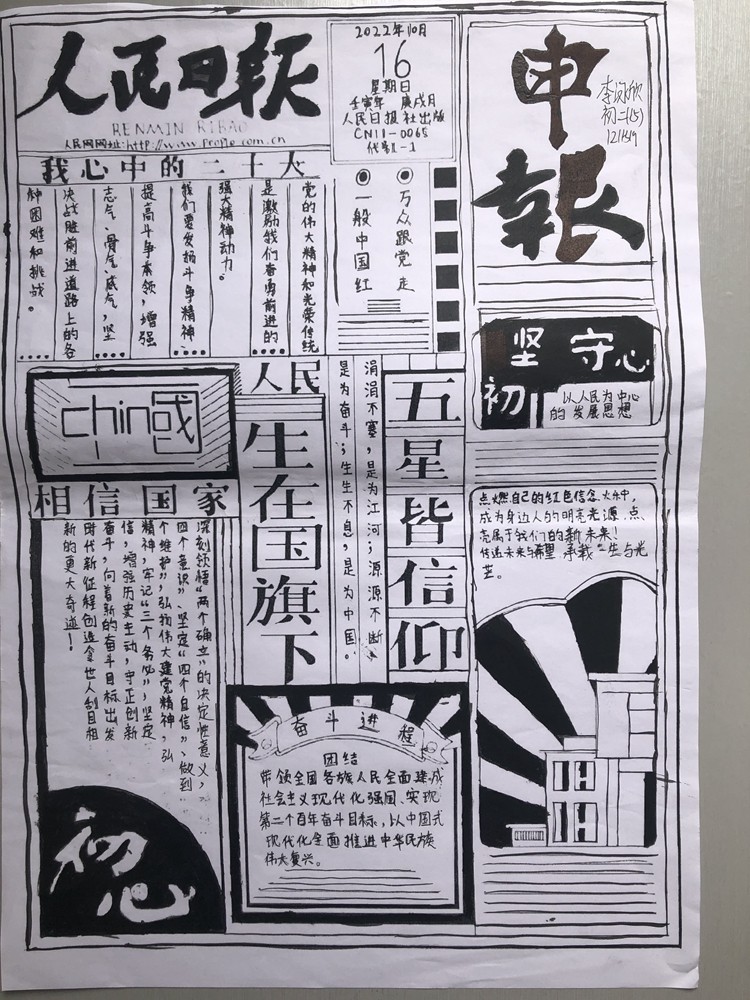 人民日报
RENMIN RIBAO
人民网网址:http://www.people.com.cn
2022年10月
16
星期日
壬寅年 庚戌月
人民日报社出版
CN11-0065
代号1-1
申
報
初二(15)
我心中的二十大
党的伟大精神和光荣传统
是激励我们奋勇前进的
强大精神动力。
我们要发扬斗争精神、
提高斗争本领,增强
志气、骨气、底气,坚
决战胜前进道路上的各
种困难和挑战。
万众跟党走
一般中国红
坚守
初心
以人民为中心
的发展思想
china
國
人民
生在国旗下
涓涓不塞,是为江河;源源不断、
是为奋斗;生生不息,是为中国。
五星皆信仰
相信国家
深刻领悟“两个确立”的决定性意义,
“四个意识”、坚定“四个自信”、做到
个维护”,弘扬伟大建党精神,弘
精神,牢记“三个务必”,坚定
信,增强历史主动,守正创新
奋斗,向着新的奋斗目标出发
时代新征程创造令世人刮目相
新的更大奇迹!
初心
奋斗进程
团结
带领全国各族人民全面建成
社会主义现代化强国、实现
第二个百年奋斗目标,以中国式
现代化全面推进中华民族
伟大复兴。
点燃自己的红色信念火种,
成为身边人的明亮光源.点.
亮属于我们的新未来!
传递未来与希望 承载“生与光
芒。